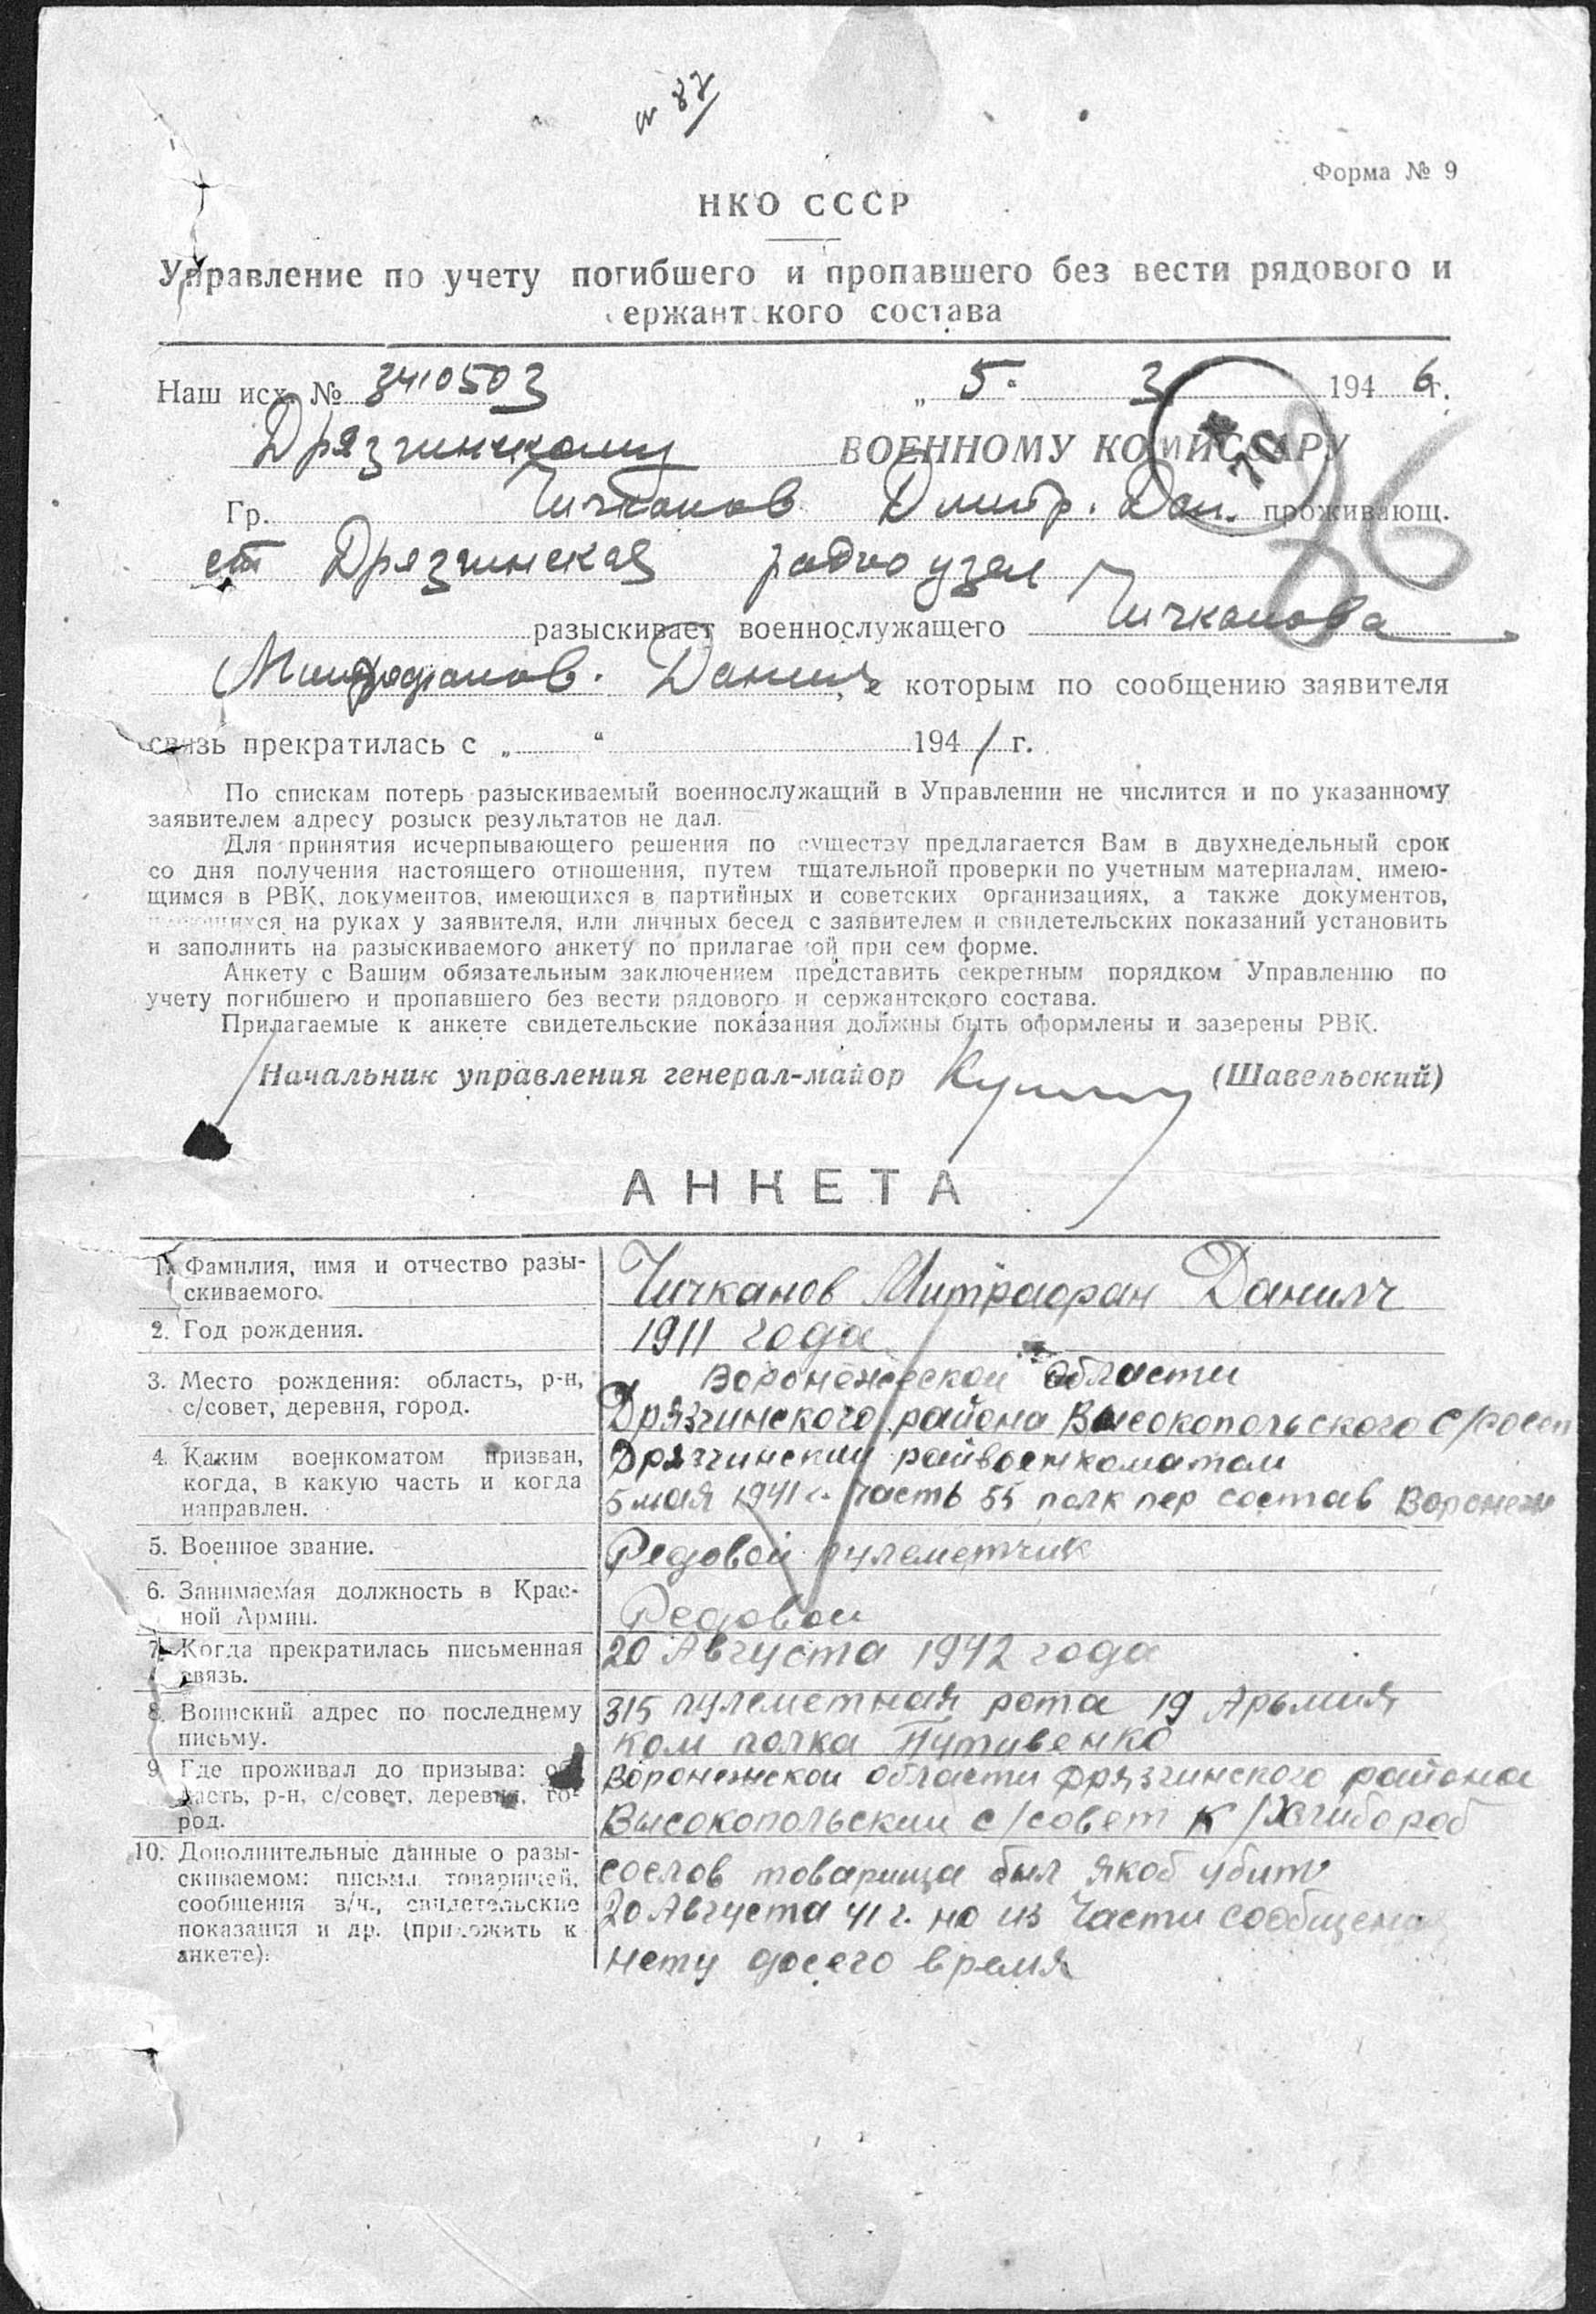 № 87
Форма № 9
НКО СССР
Управление по учету погибшего и пропавшего без вести рядового и
сержантского состава
Наш исх. № 3410503 „ 5. 3 194 6 г.
Дрязгинскому ВОЕННОМУ КОМИССАРУ
Гр. Чичканов Дмитр. Дан. проживающ.
ст Дрязгинская радио узел
86
разыскивает военнослужащего Чичканова
Митрофанов. Данил, с которым по сообщению заявителя
связь прекратилась с „ “ 194 1 г.
По спискам потерь разыскиваемый военнослужащий в Управлении не числится и по указанному
заявителем адресу розыск результатов не дал.
Для принятия исчерпывающего решения по существу предлагается Вам в двухнедельный срок
со дня получения настоящего отношения, путем тщательной проверки по учетным материалам, имею-
щимся в РВК, документов, имеющихся в партийных и советских организациях, а также документов,
имеющихся на руках у заявителя, или личных бесед с заявителем и свидетельских показаний установить
и заполнить на разыскиваемого анкету по прилагаемой при сем форме.
Анкету с Вашим обязательным заключением представить секретным порядком Управлению по
учету погибшего и пропавшего без вести рядового и сержантского состава.
Прилагаемые к анкете свидетельские показания должны быть оформлены и заверены РВК.
Начальник управления генерал-майор (Шавельский)
АНКЕТА
1. Фамилия, имя и отчество разы-
скиваемого.
Чичканов Митрафан Данилч
2. Год рождения.
1911 года
3. Место рождения: область, р-н,
с/совет, деревня, город.
Воронежской области
Дрязгинского района Высокопольского с/сосеп
4. Каким военкоматом призван,
когда, в какую часть и когда
направлен.
Дрязгинским райвоенкоматом
5 мая 1941 г. часть 55 полк пер состав Воронеж
5. Военное звание.
Редовой пулеметчик
6. Занимаемая должность в Крас-
ной Армии.
Редовой
7. Когда прекратилась письменная
связь.
20 Августа 1942 года
8. Воинский адрес по последнему
письму.
315 пулеметная рота 19 Арьмия
ком полка Путивенко
9. Где проживал до призыва: об-
ласть, р-н, с/совет, деревня, го-
род.
Воронежской области Дрязгинского района
Высокопольский с/совет к/х
10. Дополнительные данные о разы-
скиваемом: письма товарищей,
сообщения в/ч., свидетельские
показания и др. (приложить к
анкете).
сослов товарища был якоб убит
20 Августа 41 г. но из Части сообщения
нету досего время